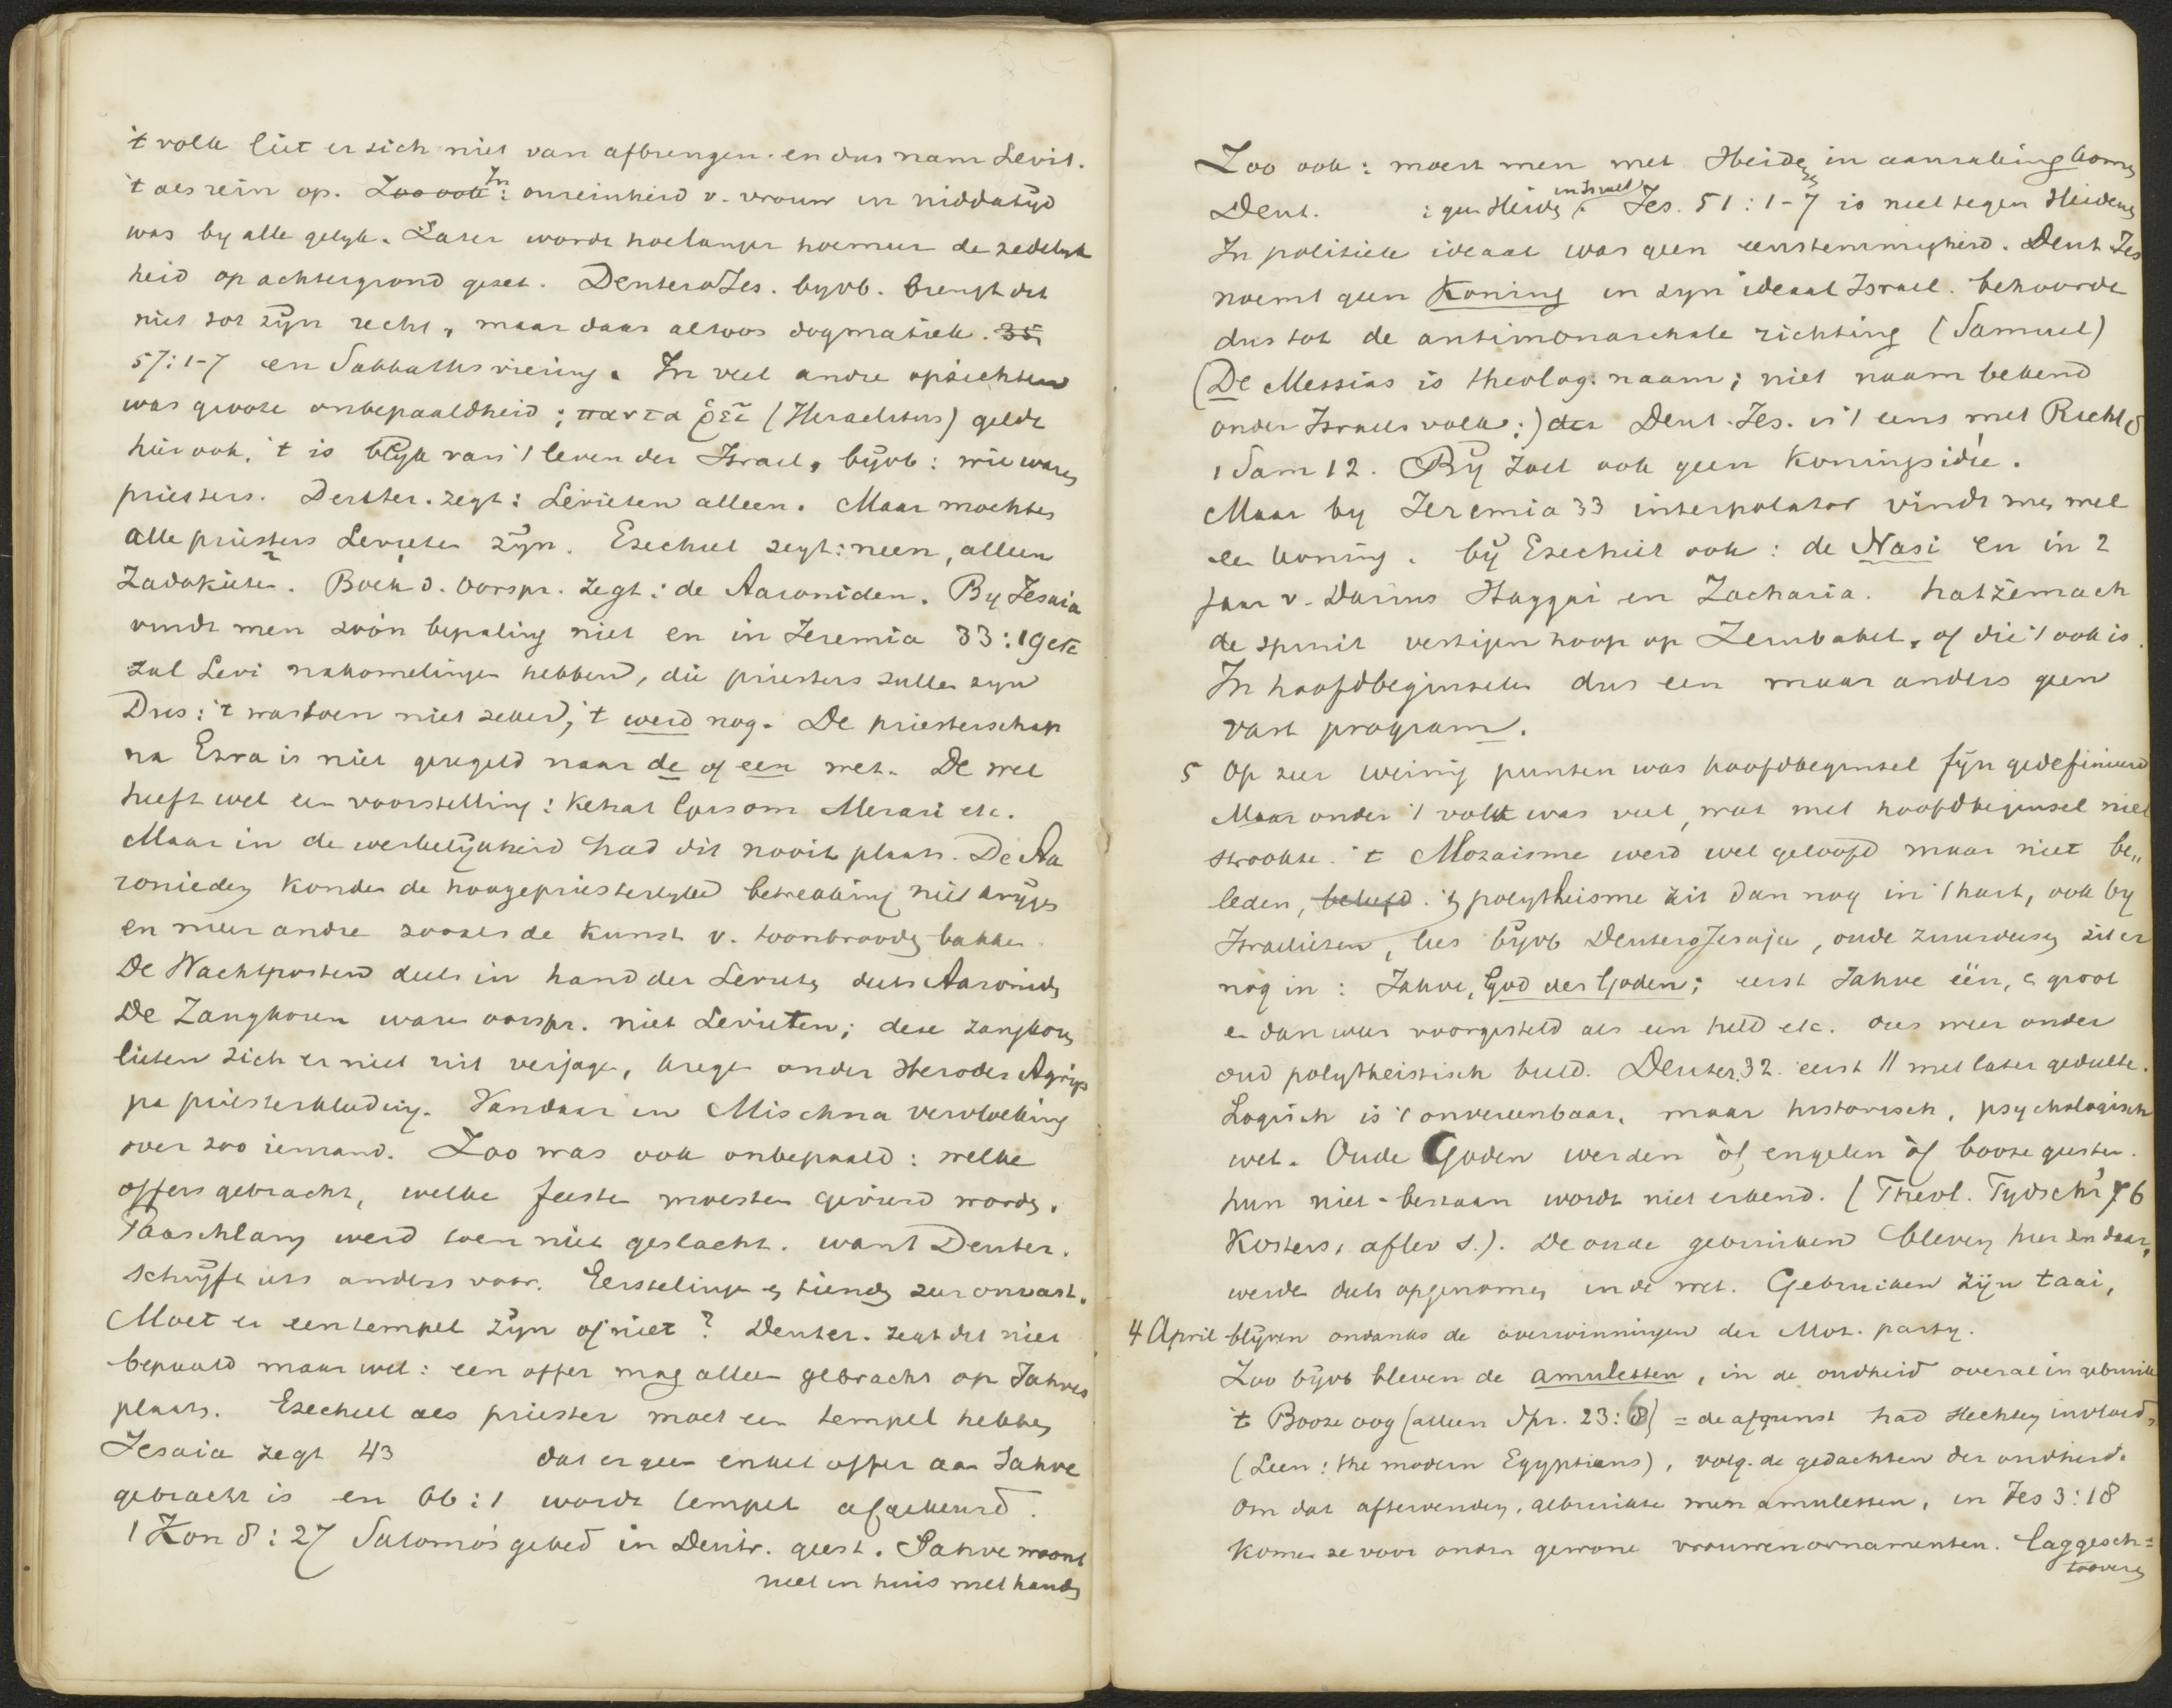 't volk liet er zich niet van afbrengen en dus nam Levit.
't als rein op. Zoo ook: In onreinheid v. vrouw in niddatijd
was by alle gelyk. Later wordt hoelanger hoemeer de zedelyk
heid op achtergrond gezet. DeuteroJes. byvb. brengt dit
niet tot zijn recht, maar daar altoos dogmatiek. 35
57:1-7 en Sabbathsviering. In veel andre opzichten
was groote onbepaaldheid; παντα ῥεῖ (Heraclitus) geldt
hier ook, 't is blyk van 't leven der Israel, bijvb: wie waren
priesters. Deuter. zegt: Levieten alleen. Maar mochten
alle priesters Levieten zijn. Ezechiel zegt: neen, alleen
Zadokieten. Boek d. Oorspr. zegt: de Aaroniden. By Jesaia
vindt men zoo'n bepaling niet en in Jeremia 33:19 etc
zal Levi nakomelingen hebben, die priesters zullen zyn
Dus: 't was toen niet zeker, 't werd nog. De priesterschap
na Ezra is niet geregeld naar de of een wet. De wet
heeft wel een voorstelling: Kehat Gersom Merari etc.
Maar in de werkelijkheid had dit nooit plaats. De Aa
ronieden konden de hoogepriesterlyke betrekking niet krijgen
en meer andre zooals de kunst v. toonbrooden bakken.
De Wachtposten deels in hand der Levieten deels Aaroniden
De Zangkoren waren oorspr. niet Levieten; deze zangkoren
lieten zich er niet uit verjagen, kregen onder Herodes Agrip
pa priesterkleding. Vandaar in Mischna vervloeking
over zoo iemand. Zoo was ook onbepaald: welke
offers gebracht, welke feesten moesten gevierd worden.
Paaschlam werd toen niet geslacht. want Deuter.
schrijft iets anders voor. Eerstelingen en tienden zeer onvast.
Moet er een tempel zijn of niet? Deuter. zegt dit niet
bepaald maar wel: een offer mag alleen gebracht op Jahves
plaats. Ezechiel als priester moet een tempel hebben
Jesaia zegt 43 dat er geen enkel offer aan Jahve
gebracht is en 66:1 wordt tempel afgekeurd.
1 Kon 8:27 Salomo's gebed in Deutr. geest. Jahve woont
niet in huis met handen
Zoo ook: moest men met Heidenen in aanraking komen
Deut. : geen Heiden in Israel. Jes. 51:1-7 is niet tegen Heidenen
In politiek ideaal was geen eenstemmigheid. Deut Jes
noemt geen Koning in zyn ideaal Israel. behoorde
dus tot de antimonarchale richting (Samuel)
(De Messias is theolog. naam; niet naam bekend
onder Israels volk;) der Deut. Jes. is 't eens met Richt 8
1 Sam 12. Bij Joel ook geen Koningsidee.
Maar by Jeremia 33 interpolator vindt men wel
een koning. bij Ezechiel ook: de Nasi en in 2
jaar v. Darius Haggai en Zacharia. hatzemach
de spruit vestigen hoop op Zerubabel, of die 't ook is.
In hoofdbeginselen dus een maar anders geen
vast program.
5 Op zeer weinig punten was hoofdbeginsel fijn gedefinieerd
Maar onder 't volk was veel, wat met hoofdbeginsel niet
strookte. 't Mozaisme werd wel geloofd maar niet be„
leden, beleefd. 't polytheisme zit dan nog in 't hart, ook by
Israelieten, lees bijvb DeuteroJesaja, oude zuurdeeg zit er
nog in: Jahve, God der Goden; eerst Jahve één, en groot
en dan weer voorgesteld als een held etc. dus weer onder
oud polytheistisch beeld. Deuter. 32. eerst // met later gedeelte.
Logisch is 't onvereenbaar, maar historisch, psychologisch
wel. Oude Goden werden òf engelen òf booze geesten.
hun niet-bestaan wordt niet erkend. (Theol. Tydschr 76
Kosters, aflev 1.). De oude gebruiken bleven hier en daar,
werden deels opgenomen in de wet. Gebruiken zijn taai,
4 April blijven ondanks de overwinningen der Moz. party.
Zoo bijvb bleven de amuletten, in de oudheid overal in gebruik
't Booze oog (alleen Spr. 23:6) = de afgunst had slechten invloed,
(Leen: the modern Egyptians), volg. de gedachten der oudheid.
Om dat aftewenden, gebruikte men amuletten, in Jes 3:18
komen ze voor onder gewone vrouwenornamenten.
tooveren